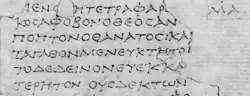 ΛΕΝΟΝΗΤΕΤΡΑΦΑΡ ΛΙΑ
ΚΟΣΑΦΟΒΟΝΟΘΕΟΣΑΝ
ΠΟΠΤΟΝΟΘΑΝΑΤΟΣΚΑΙ
ΤΑΓΑΘΟΝΜΕΝΕΥΚΤΗΤΟ
ΤΟΔΕΔΕΙΝΟΝΕΥΕΚΚΑ
ΤΕΡΗΤΟΝ